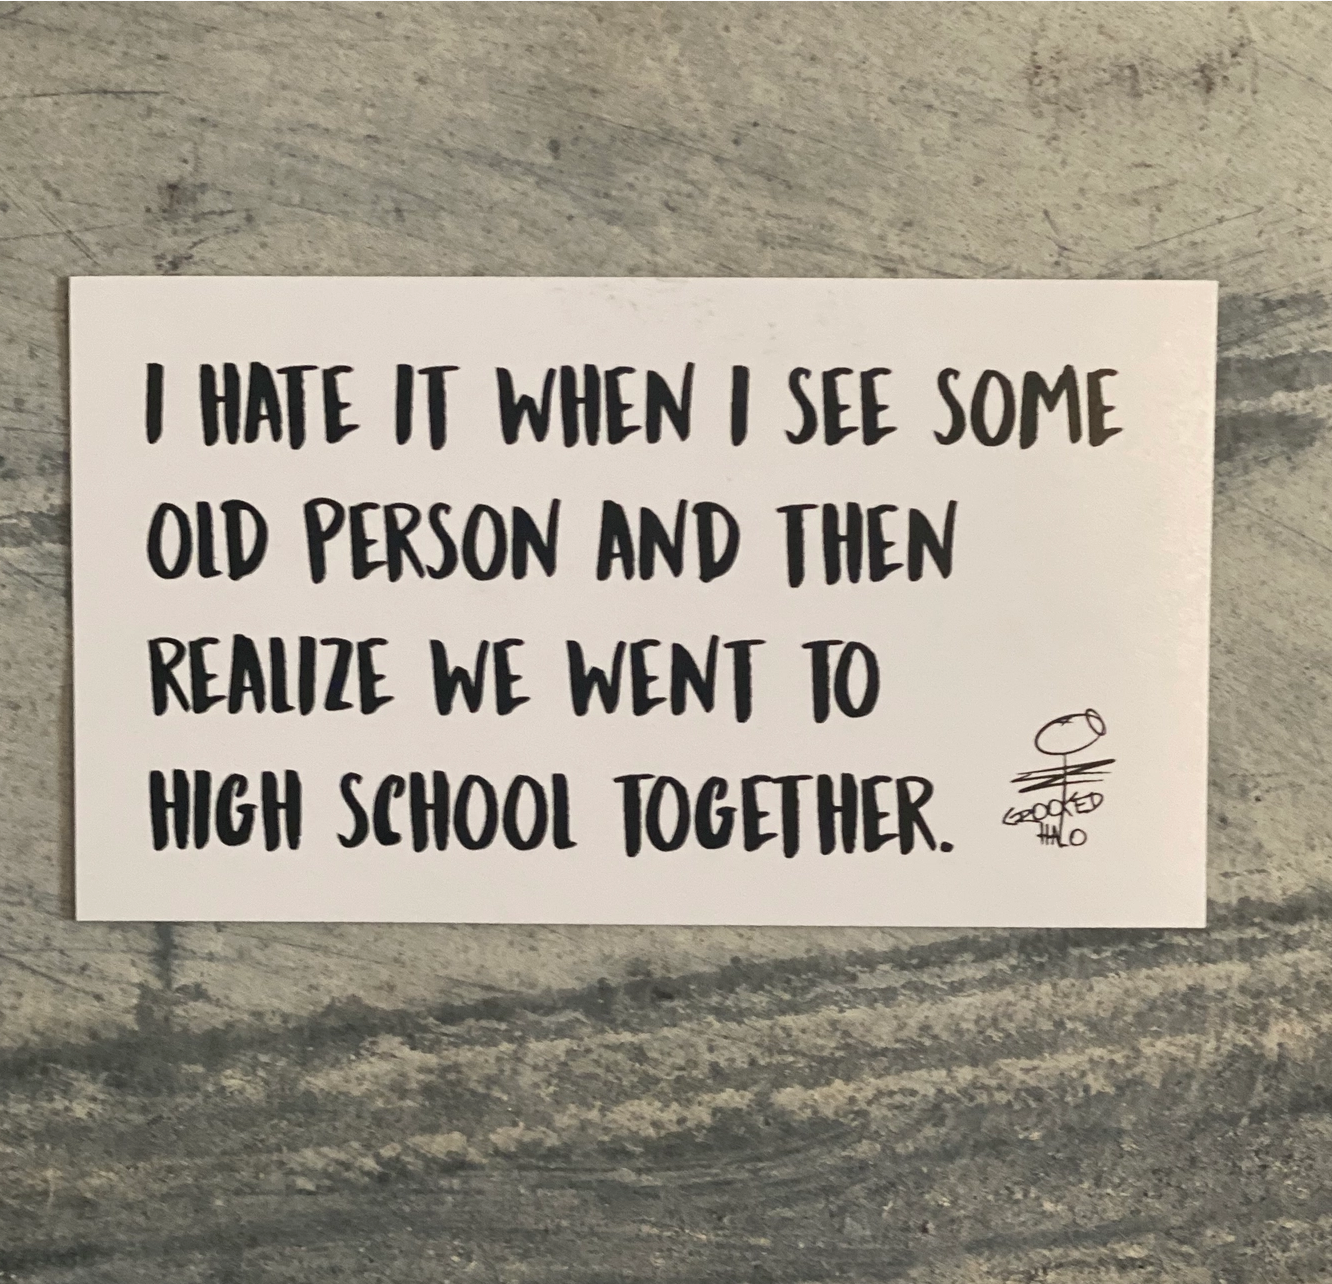 I HATE IT WHEN I SEE SOME
OLD PERSON AND THEN
REALIZE WE WENT TO
HIGH SCHOOL TOGETHER.
CROOKED
HALO